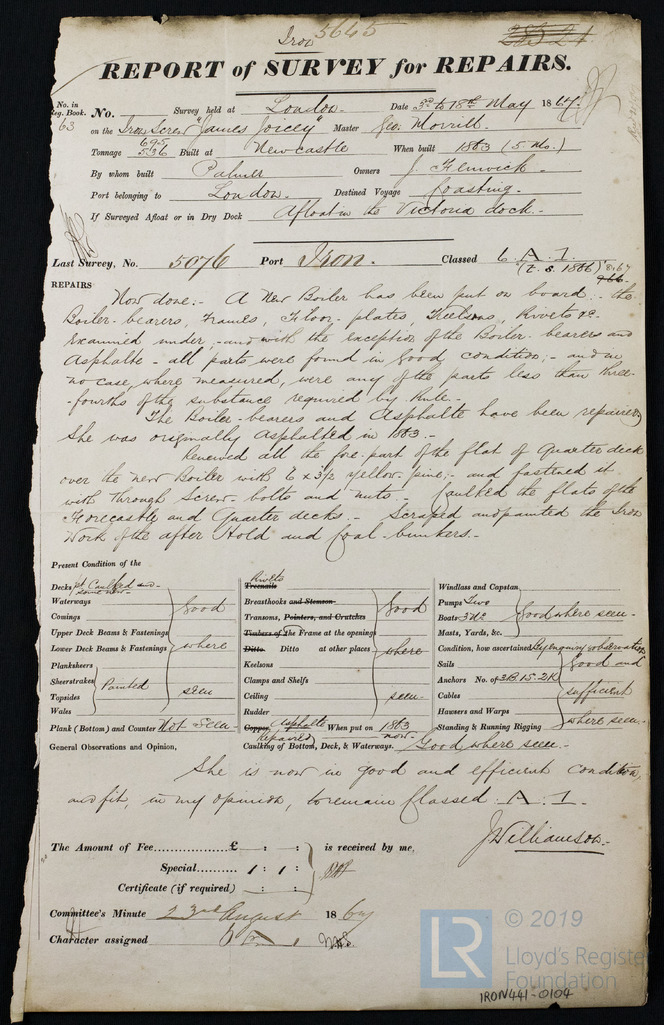 Iron 5645
REPORT of SURVEY for REPAIRS.
No. in Reg. Book. No. Survey held at London Date 3rd to 18th May 1867
63 on the Iron Screw "James Joicey" Master Geo. Morrill.
Tonnage 695 536 Built at Newcastle When built 1863 (5 Mo.)
By whom built Palmer Owners J. Fenwick
Port belonging to London Destined Voyage Coasting.
If Surveyed Afloat or in Dry Dock Afloat in the Victoria dock.
Last Survey, No. 5076 Port Iron. Classed 6 A. 1.
(t. s. 1866) 8.67
REPAIRS
Now done:- A New Boiler has been put on board :- the
Boiler-bearers, Frames, Floor-plates, Keelsons, Rivets &c.
Examined under,- and with the exception of the Boiler-bearers and
Asphalte - all parts were found in Good condition;- and in
no case, where measured, were any of the parts less than three-
-fourths of the substance required by Rule.-
The Boiler-bearers and Asphalte have been repaired
She was originally Asphalted in 1863.-
Renewed all the fore part of the flat of Quarter deck
over the new Boiler with 6 x 3½ yellow-pine;- and fastened it
with through Screw-bolts and nuts.- Caulked the flats of the
Forecastle and Quarter decks.- Scraped and painted the Iron
Work of the after Hold and Coal-bunkers.-
Present Condition of the
Decks pt Caulked some new
Waterways
Comings
Upper Deck Beams & Fastenings
Lower Deck Beams & Fastenings
Good where seen
Planksheers
Sheerstrakes
Topsides
Wales
Painted
Plank (Bottom) and Counter Not Seen
Rivets
Treenails
Breasthooks and Stemson
Transoms, Pointers, and Crutches
Timbers of The Frame at the openings
Ditto. Ditto at other places
Keelsons
Clamps and Shelfs
Ceiling
Rudder
Good where seen
Copper, Asphalte When put on 1863
Repaired now
Caulking of Bottom, Deck, & Waterways. Good where seen.-
Windlass and Capstan
Pumps Two
Boats 3 Do
Masts, Yards, &c.
Good where seen
Condition, how ascertained By enquiry & observation
Sails
Anchors No. of 3B 1S. 2K
Cables
Hawsers and Warps
Standing & Running Rigging
Good and sufficient where seen.
General Observations and Opinion,
She is now in good and efficient condition,
and fit, in my opinion, to remain Classed .A. 1.
J Williamson.
The Amount of Fee £ : : is received by me,
Special 1 : 1 :
Certificate (if required) : :
Committee's Minute 23rd August 1867
Character assigned
© 2019
LR
Lloyd's Register
Foundation
IRON441-0104